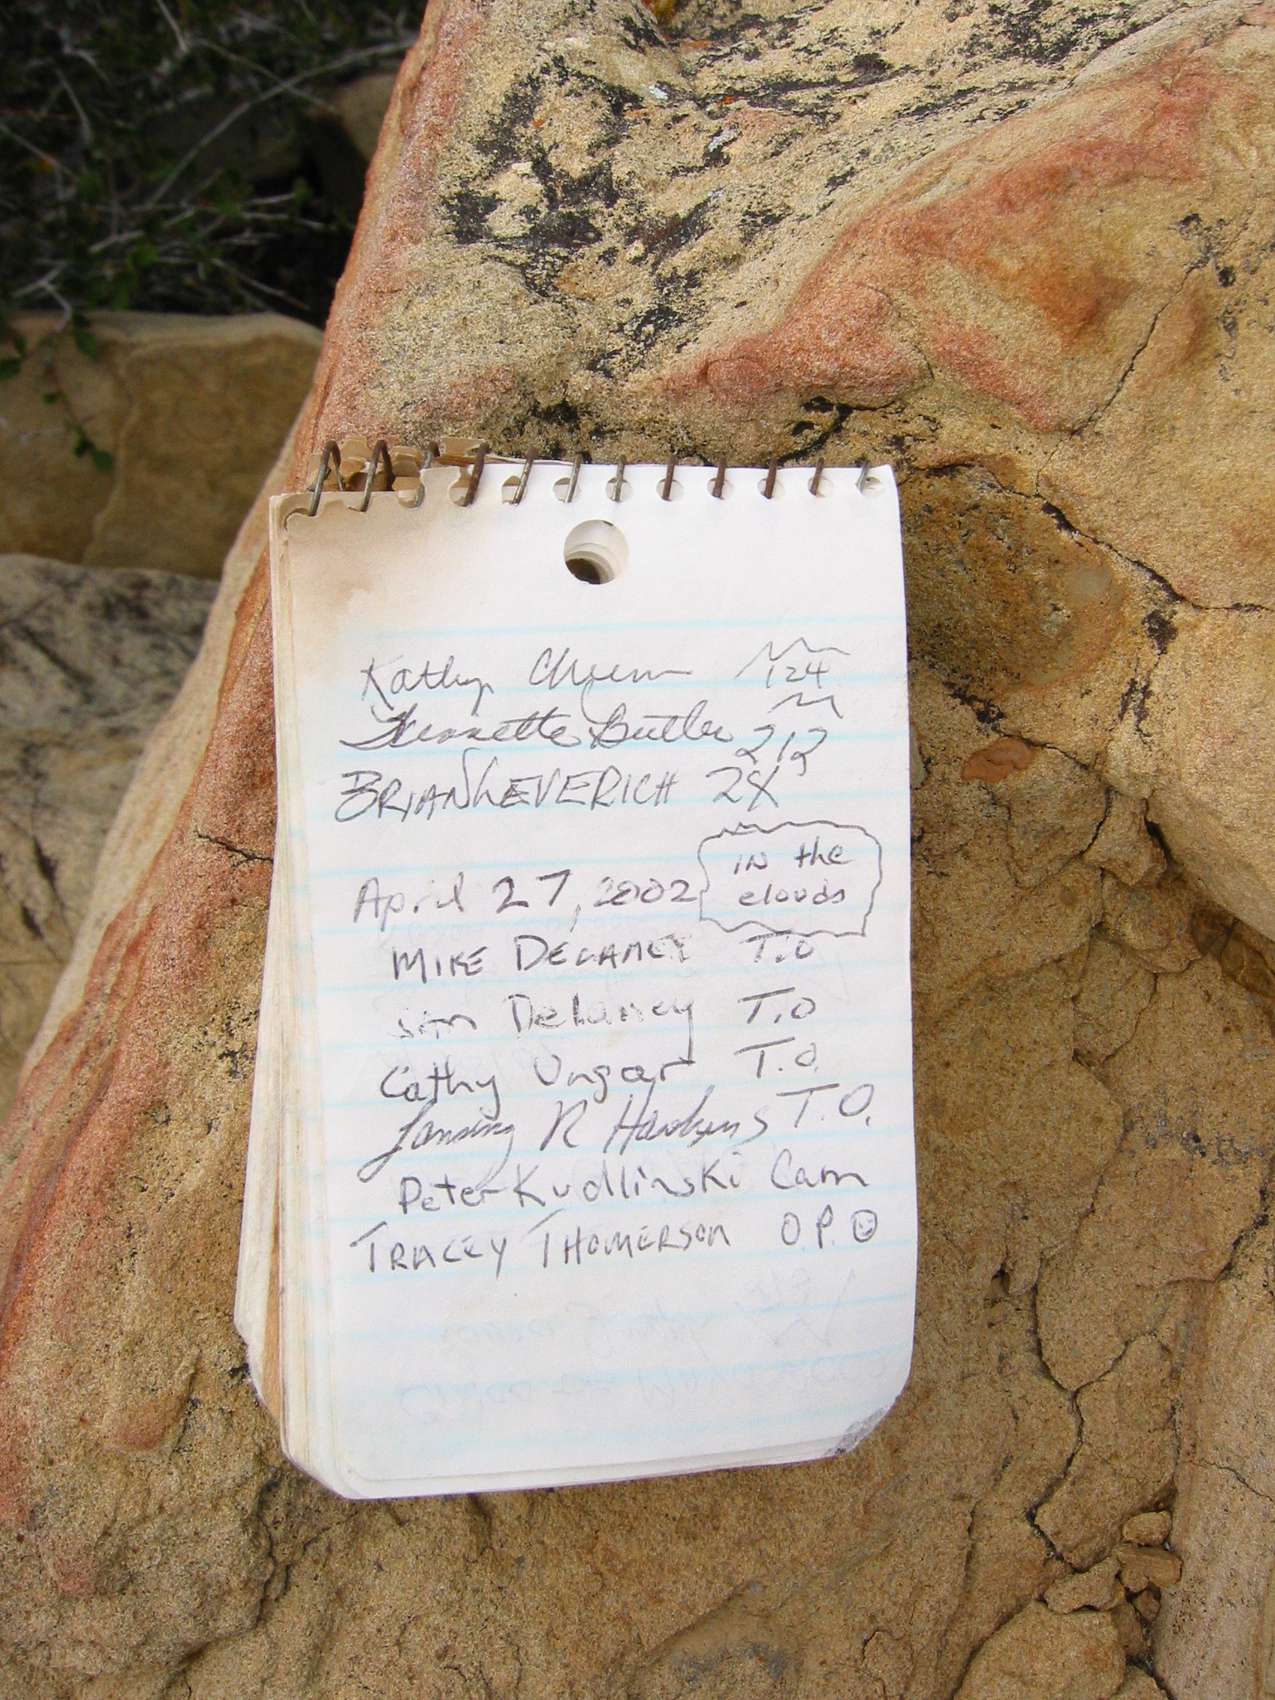 Kathy 124
Butler 212
BRIAN LEVERICH 28X
April 27, 2002 in the clouds
MIKE DELANEY T.O
Delaney T.O
Cathy Ungar T.O.
Lansing R Hawkins T.O.
Peter Kudlinski Cam
TRACEY THOMERSON O.P.